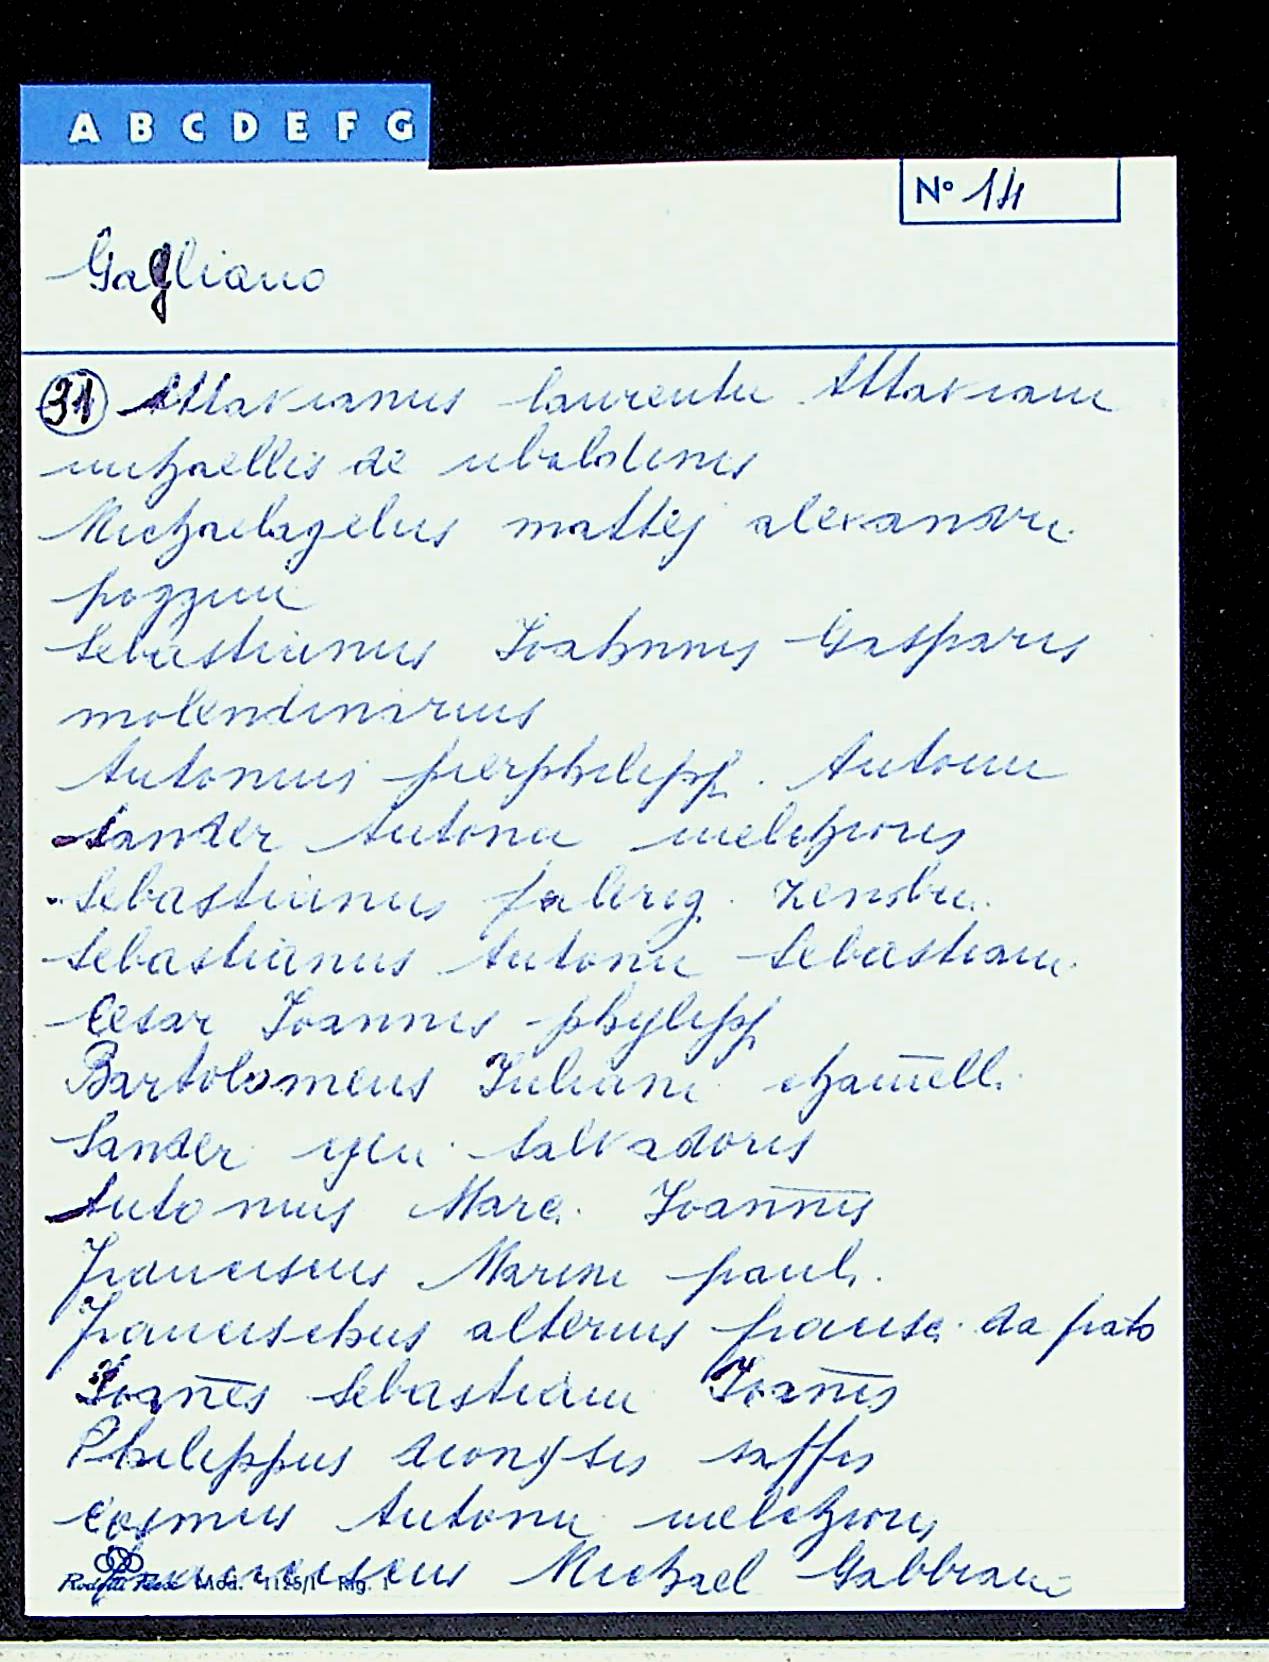 A B C D E F G
Nº 14
Gagliano
31 Attavianus laurentii Attaviani
michaellis de ubaldinis
Michaelagelus mattej alexandri
pozzini
Sebastianus Ioahnnis Gasparis
molendinarius
Antonius pierphilipp. Antonii
Sander Antonii melchioris
Sebastianus fabrig.
Sebastianus Antonii Sebastiani
Cesar Ioannis phylipp
Bartolomeus Iuliani
Sander Salvadoris
Antonius Marci Ioannis
Franciscus Marini pauli.
Francischus alterius francisc. da prato
Ioanes Sebastiani Ioanis
Philippus dionysis
Cosmus Antonii melchioris
Franciscus Michael Gabbiani
Mod. 1125/1 - Rig. 1